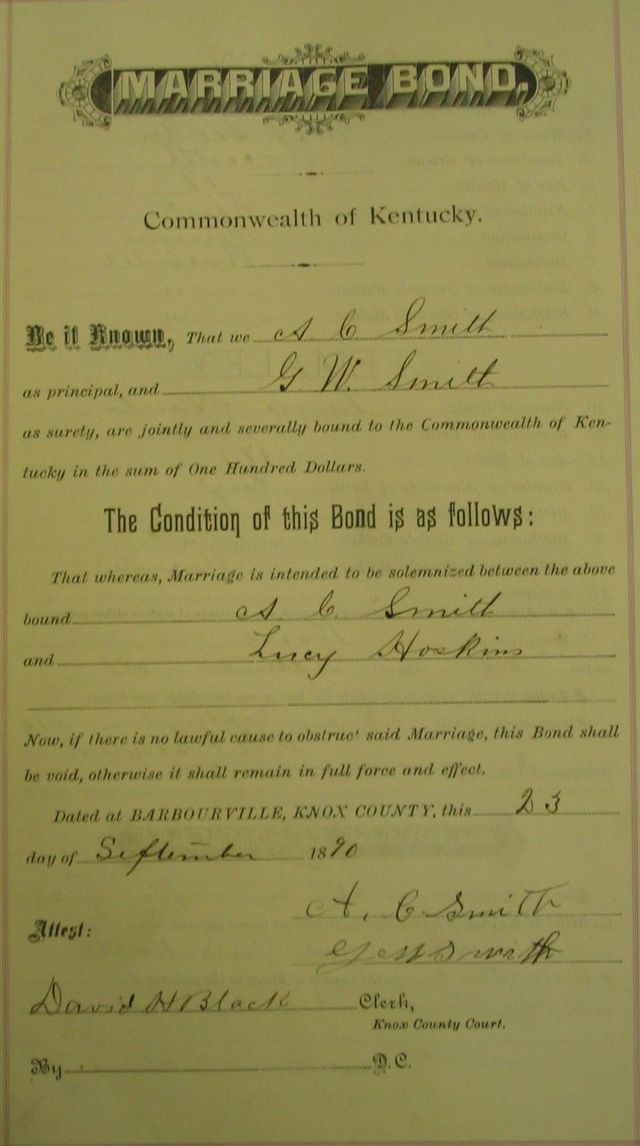 MARRIAGE BOND,
Commonwealth of Kentucky.
Be it Known, That we A C Smith
as principal, and G W. Smith
as surety, are jointly and severally bound to the Commonwealth of Ken-
tucky in the sum of One Hundred Dollars.
The Condition of this Bond is as follows:
That whereas, Marriage is intended to be solemnized between the above
bound A C. Smith
and Lucy Hoskins
Now, if there is no lawful cause to obstruct said Marriage, this Bond shall
be void, otherwise it shall remain in full force and effect.
Dated at BARBOURVILLE, KNOX COUNTY, this 23
day of September 1890
A, C Smith
Attest:
G W Smith
David H Black Clerk,
Knox County Court.
By D.C.